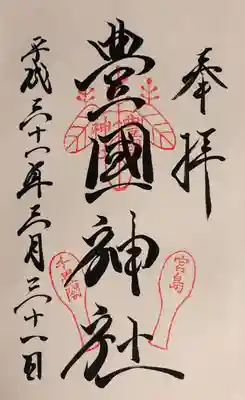 奉拝
豊國神社
宮島
千畳閣
平成三十一年三月三十一日